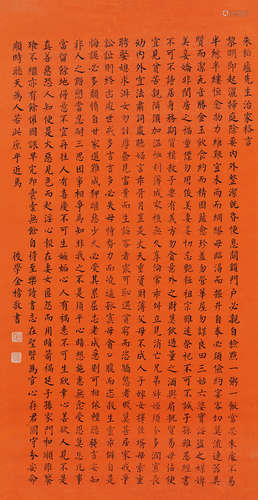 朱柏廬先生治家格言
黎明即起灑掃庭除要內外整潔既昏便息關鎖門戶必親自檢點一粥一飯當思來處不易
半絲半縷恒念物力維艱宜未雨而綢繆毋臨渴而掘井自奉必須儉約宴客切勿流連器具
質而潔瓦缶勝金玉飲食約而精園蔬愈珍饈勿營華屋勿謀良田三姑六婆實淫盜之媒婢
美妾嬌非閨房之福童僕勿用俊美妻妾切忌艷粧祖宗雖遠祭祀不可不誠子孫雖愚經書
不可不讀居身務期質樸教子要有義方勿貪意外之財莫飲過量之酒與肩挑貿易毋佔便
宜見貧苦親鄰須加溫恤刻薄成家理無久享倫常乖舛立見消亡兄弟叔姪須分多潤寡長
幼內外宜法肅詞嚴聽婦言乖骨肉豈是丈夫重貲財薄父母不成人子嫁女擇佳壻毋索重
聘娶媳求淑女勿計厚奩見富貴而生諂容者最可恥遇貧窮而作驕態者賤莫甚居家戒爭
訟訟則終凶處世戒多言言多必失毋恃勢力而凌逼孤寡勿貪口腹而恣殺牲禽乖僻自是
悔誤必多頹惰自甘家道難成狎暱惡少久必受其累屈志老成急則可相倚輕聽發言安知
非人之譖愬當忍耐三思因事相爭焉知非我之不是須平心暗想施惠勿念受恩莫忘凡事
當留餘地得意不宜再往人有喜慶不可生妒嫉心人有禍患不可生欣幸心善欲人見不是
真善惡恐人知便是大惡見色而起淫心報在妻女匿怨而用暗箭禍延子孫家門和順雖饔
飧不繼亦有餘歡國課早完即囊橐無餘自得至樂讀書志在聖賢為官心存君國守分安命
順時聽天為人若此庶乎近焉
後學金榜敬書